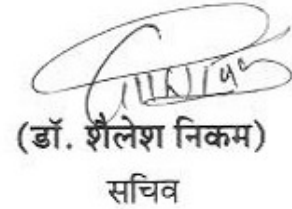 (डॉ. शैलेश निकम)
सचिव